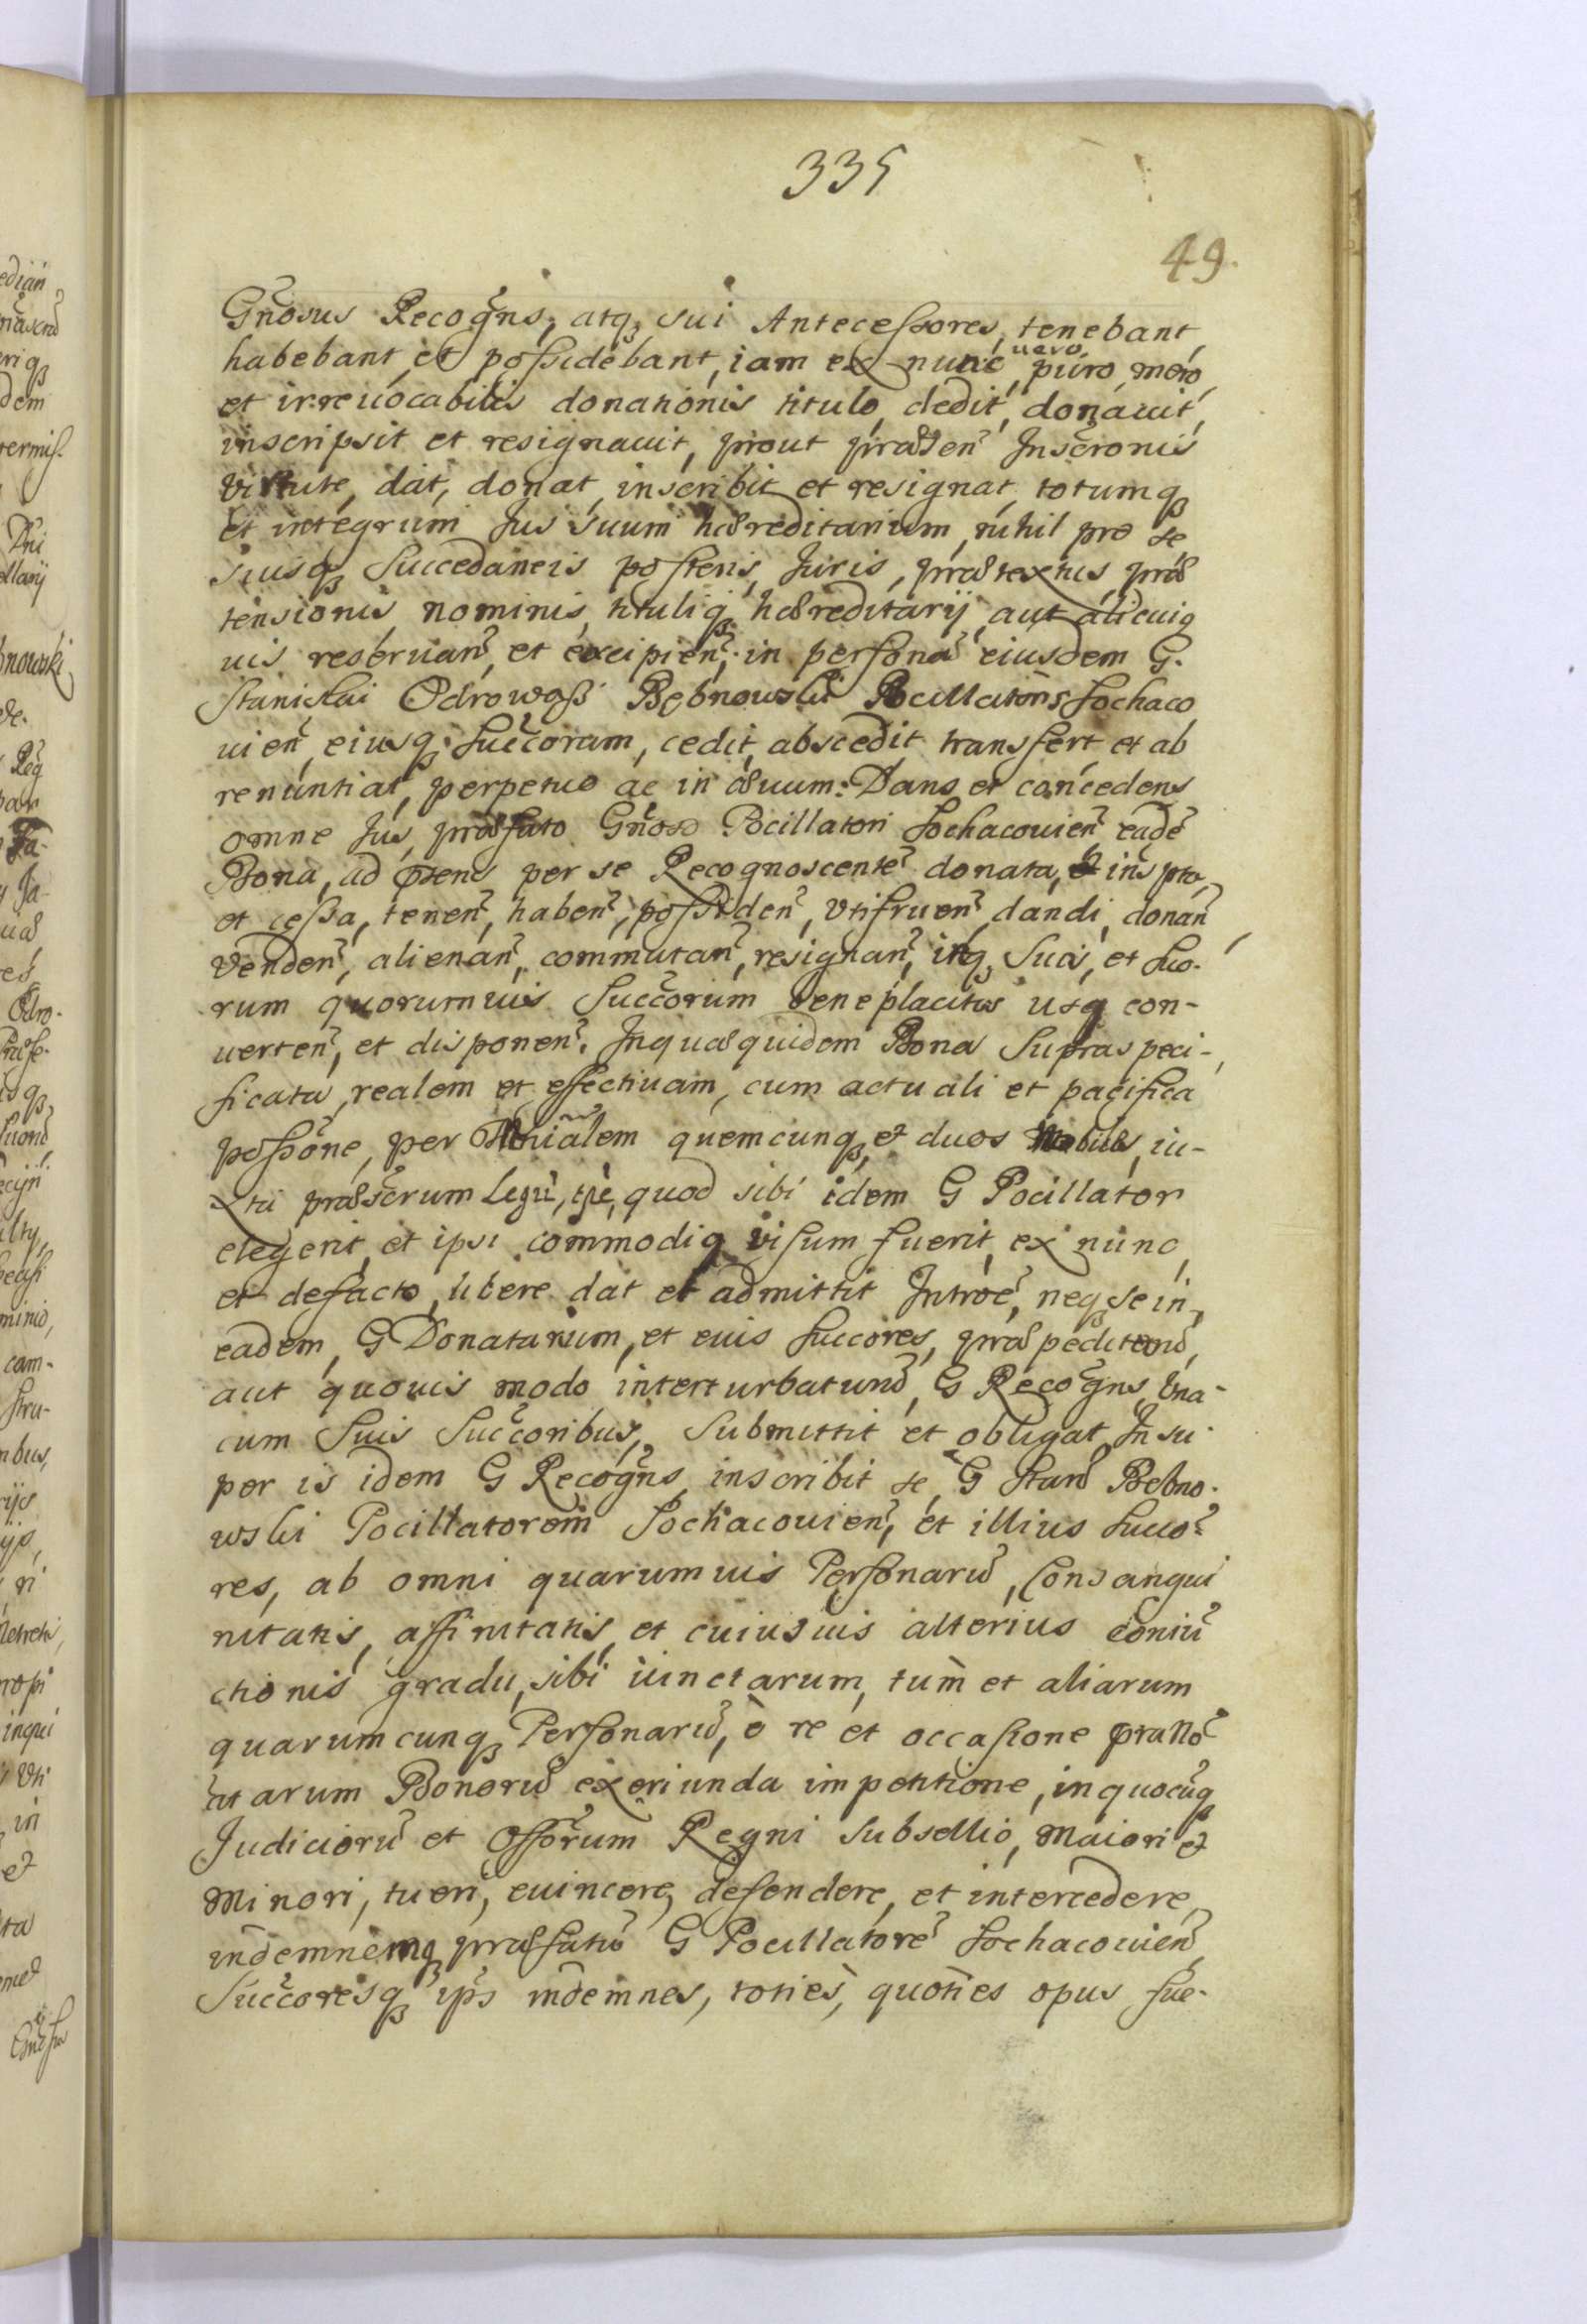 335
49.
Gnosus Recogns, atq sui Antecessores, tenebant,
habebant, et possidebant, iam ex nunc uero, puro, mero,
et irreuocabilis donationis titulo, dedit, donauit,
inscripsit et resignauit, prout præsen Inscronis
virtute, dat, donat, inscribit et resignat, totumq
et integrum Jus suum hæreditarium, nihil pro se
suisq Succedaneis posteris, Juris, prætextus, præ
tensionis, nominis, tituliq hæreditarij, aut alicuiq
uis reseruan, et excipien, in persona eiusdem G.
Stanislai Odrowąß Bębnowski Pocillatoris Sochaco
uien, eiusq Succorum, cedit, abscedit transfert, et ab
renuntiat, perpetuo ac in æuum: Dans et concedens
omne Jus, præfato Gnoso Pocillatori Sochacouien eadē
Bona, ad præsens per se Recognoscente donata, et inspta,
et cessa, tenen, haben, possiden, vtifruen, dandi, donan
venden, alienan, commutan, resignan, inq Suos, et Suo-
rum quorumuis Succorum beneplacitos usq con-
uerten, et disponen. Inquæquidem Bona Supraspeci-
ficata, realem et effectiuam, cum actuali et pacifica
possone, per Mnialem quemcunq, et duos Nobiles, iu-
xta præscrum Legū, tpē, quod sibi idem G Pocillator
elegerit, et ipsi commodiq visum fuerit, ex nunc,
et defacto, libere dat et admittit Introē, neq se in,
eadem, G Donatarium, et euis Succores, præpediturū,
aut quouis modo interturbaturū, G Recogns, vna-
cum Suis Succoribus, Submittit et obligat. Insu-
per is idem G Recogns, inscribit se, G Stanū Bebno-
wski Pocillatorem Sochacouien, et illius Succo-
res, ab omni quarumuis Personarū, Consangui
nitatis, affinitatis, et cuiusuis alterius coniū
ctionis gradu, sibi iunctarum, tum et aliarum
quarumcunq Personarū, è re et occasione prano
tatarum Bonorū exoriunda impetitione, inquocūq
Judiciorū et Offorum Regni subsellio, Maiori et
Minori, tueri, euincere, defendere, et intercedere,
indemnemq præfatū G Pocillatorē Sochacouien,
Succoresq ips indemnes, toties, quoties opus fue-